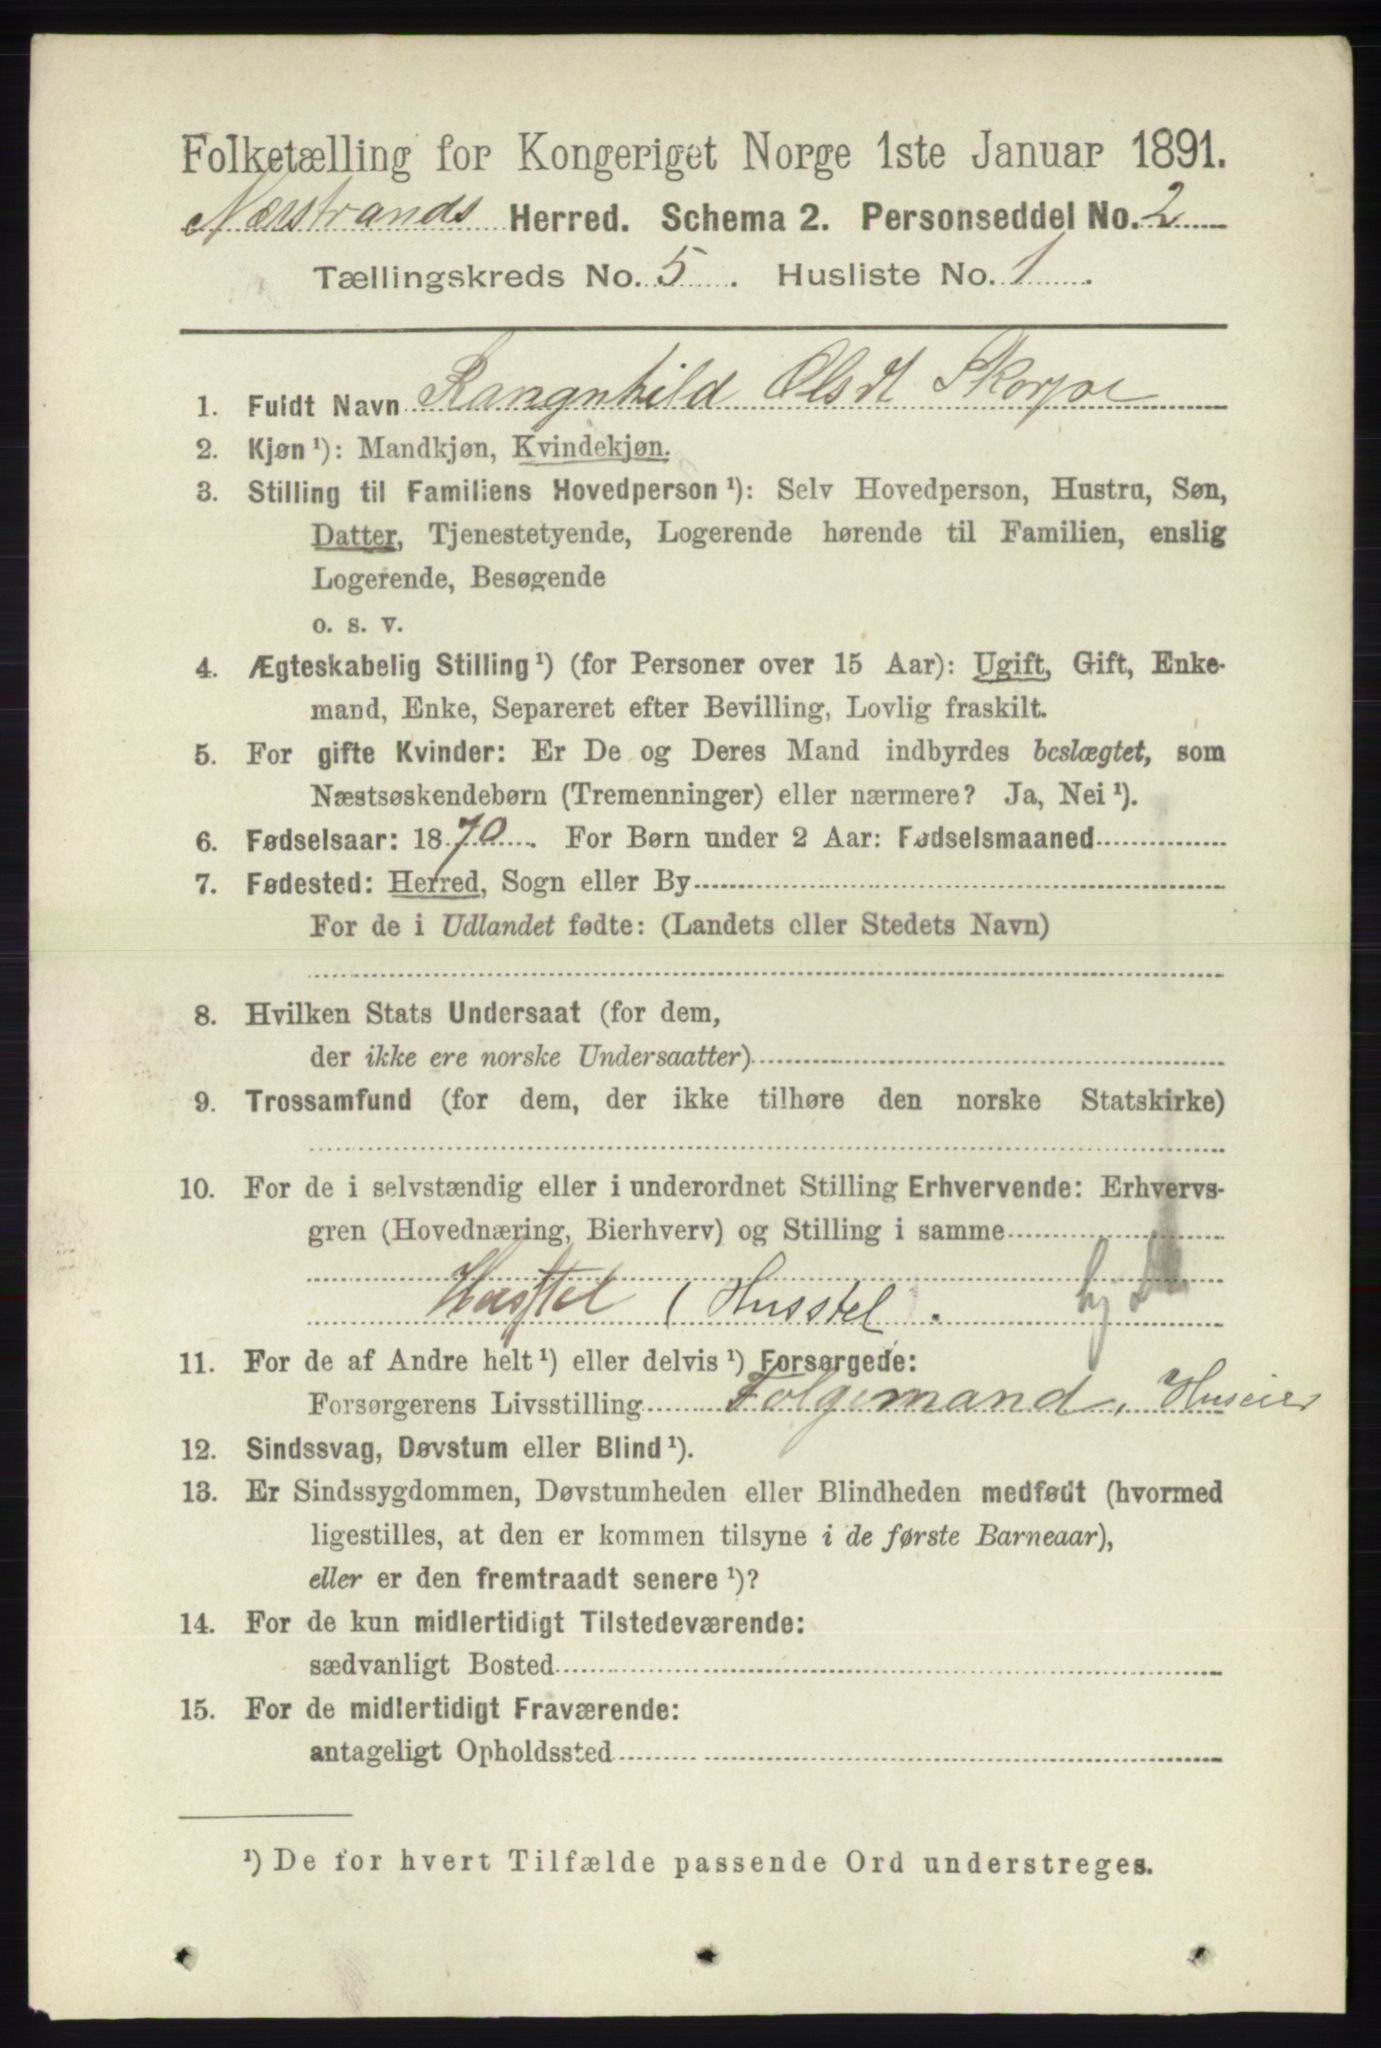 Folketælling for Kongeriget Norge 1ste Januar 1891.
Nærstrands Herred. Schema 2. Personseddel No. 2
Tællingskreds No. 5. Husliste No. 1.
1. Fuldt Navn Rangnhild Olsdt Skorpe
2. Kjøn ¹): Mandkjøn, Kvindekjøn.
3. Stilling til Familiens Hovedperson ¹): Selv Hovedperson, Hustru, Søn,
Datter, Tjenestetyende, Logerende hørende til Familien, enslig
Logerende, Besøgende
o. s. v.
4. Ægteskabelig Stilling ¹) (for Personer over 15 Aar): Ugift, Gift, Enke-
mand, Enke, Separeret efter Bevilling, Lovlig fraskilt.
5. For gifte Kvinder: Er De og Deres Mand indbyrdes beslægtet, som
Næstsøskendebørn (Tremenninger) eller nærmere? Ja, Nei ¹).
6. Fødselsaar: 1870. For Børn under 2 Aar: Fødselsmaaned
7. Fødested: Herred, Sogn eller By
For de i Udlandet fødte: (Landets eller Stedets Navn)
8. Hvilken Stats Undersaat (for dem,
der ikke ere norske Undersaatter)
9. Trossamfund (for dem, der ikke tilhøre den norske Statskirke)
10. For de i selvstændig eller i underordnet Stilling Erhvervende: Erhvervs-
gren (Hovednæring, Bierhverv) og Stilling i samme
(Husstel.
11. For de af Andre helt ¹) eller delvis ¹) Forsørgede:
Forsørgerens Livsstilling Folgemand, Huseier
12. Sindssvag, Døvstum eller Blind ¹).
13. Er Sindssygdommen, Døvstumheden eller Blindheden medfødt (hvormed
ligestilles, at den er kommen tilsyne i de første Barneaar),
eller er den fremtraadt senere ¹)?
14. For de kun midlertidigt Tilstedeværende:
sædvanligt Bosted
15. For de midlertidigt Fraværende:
antageligt Opholdssted
¹) De for hvert Tilfælde passende Ord understreges.